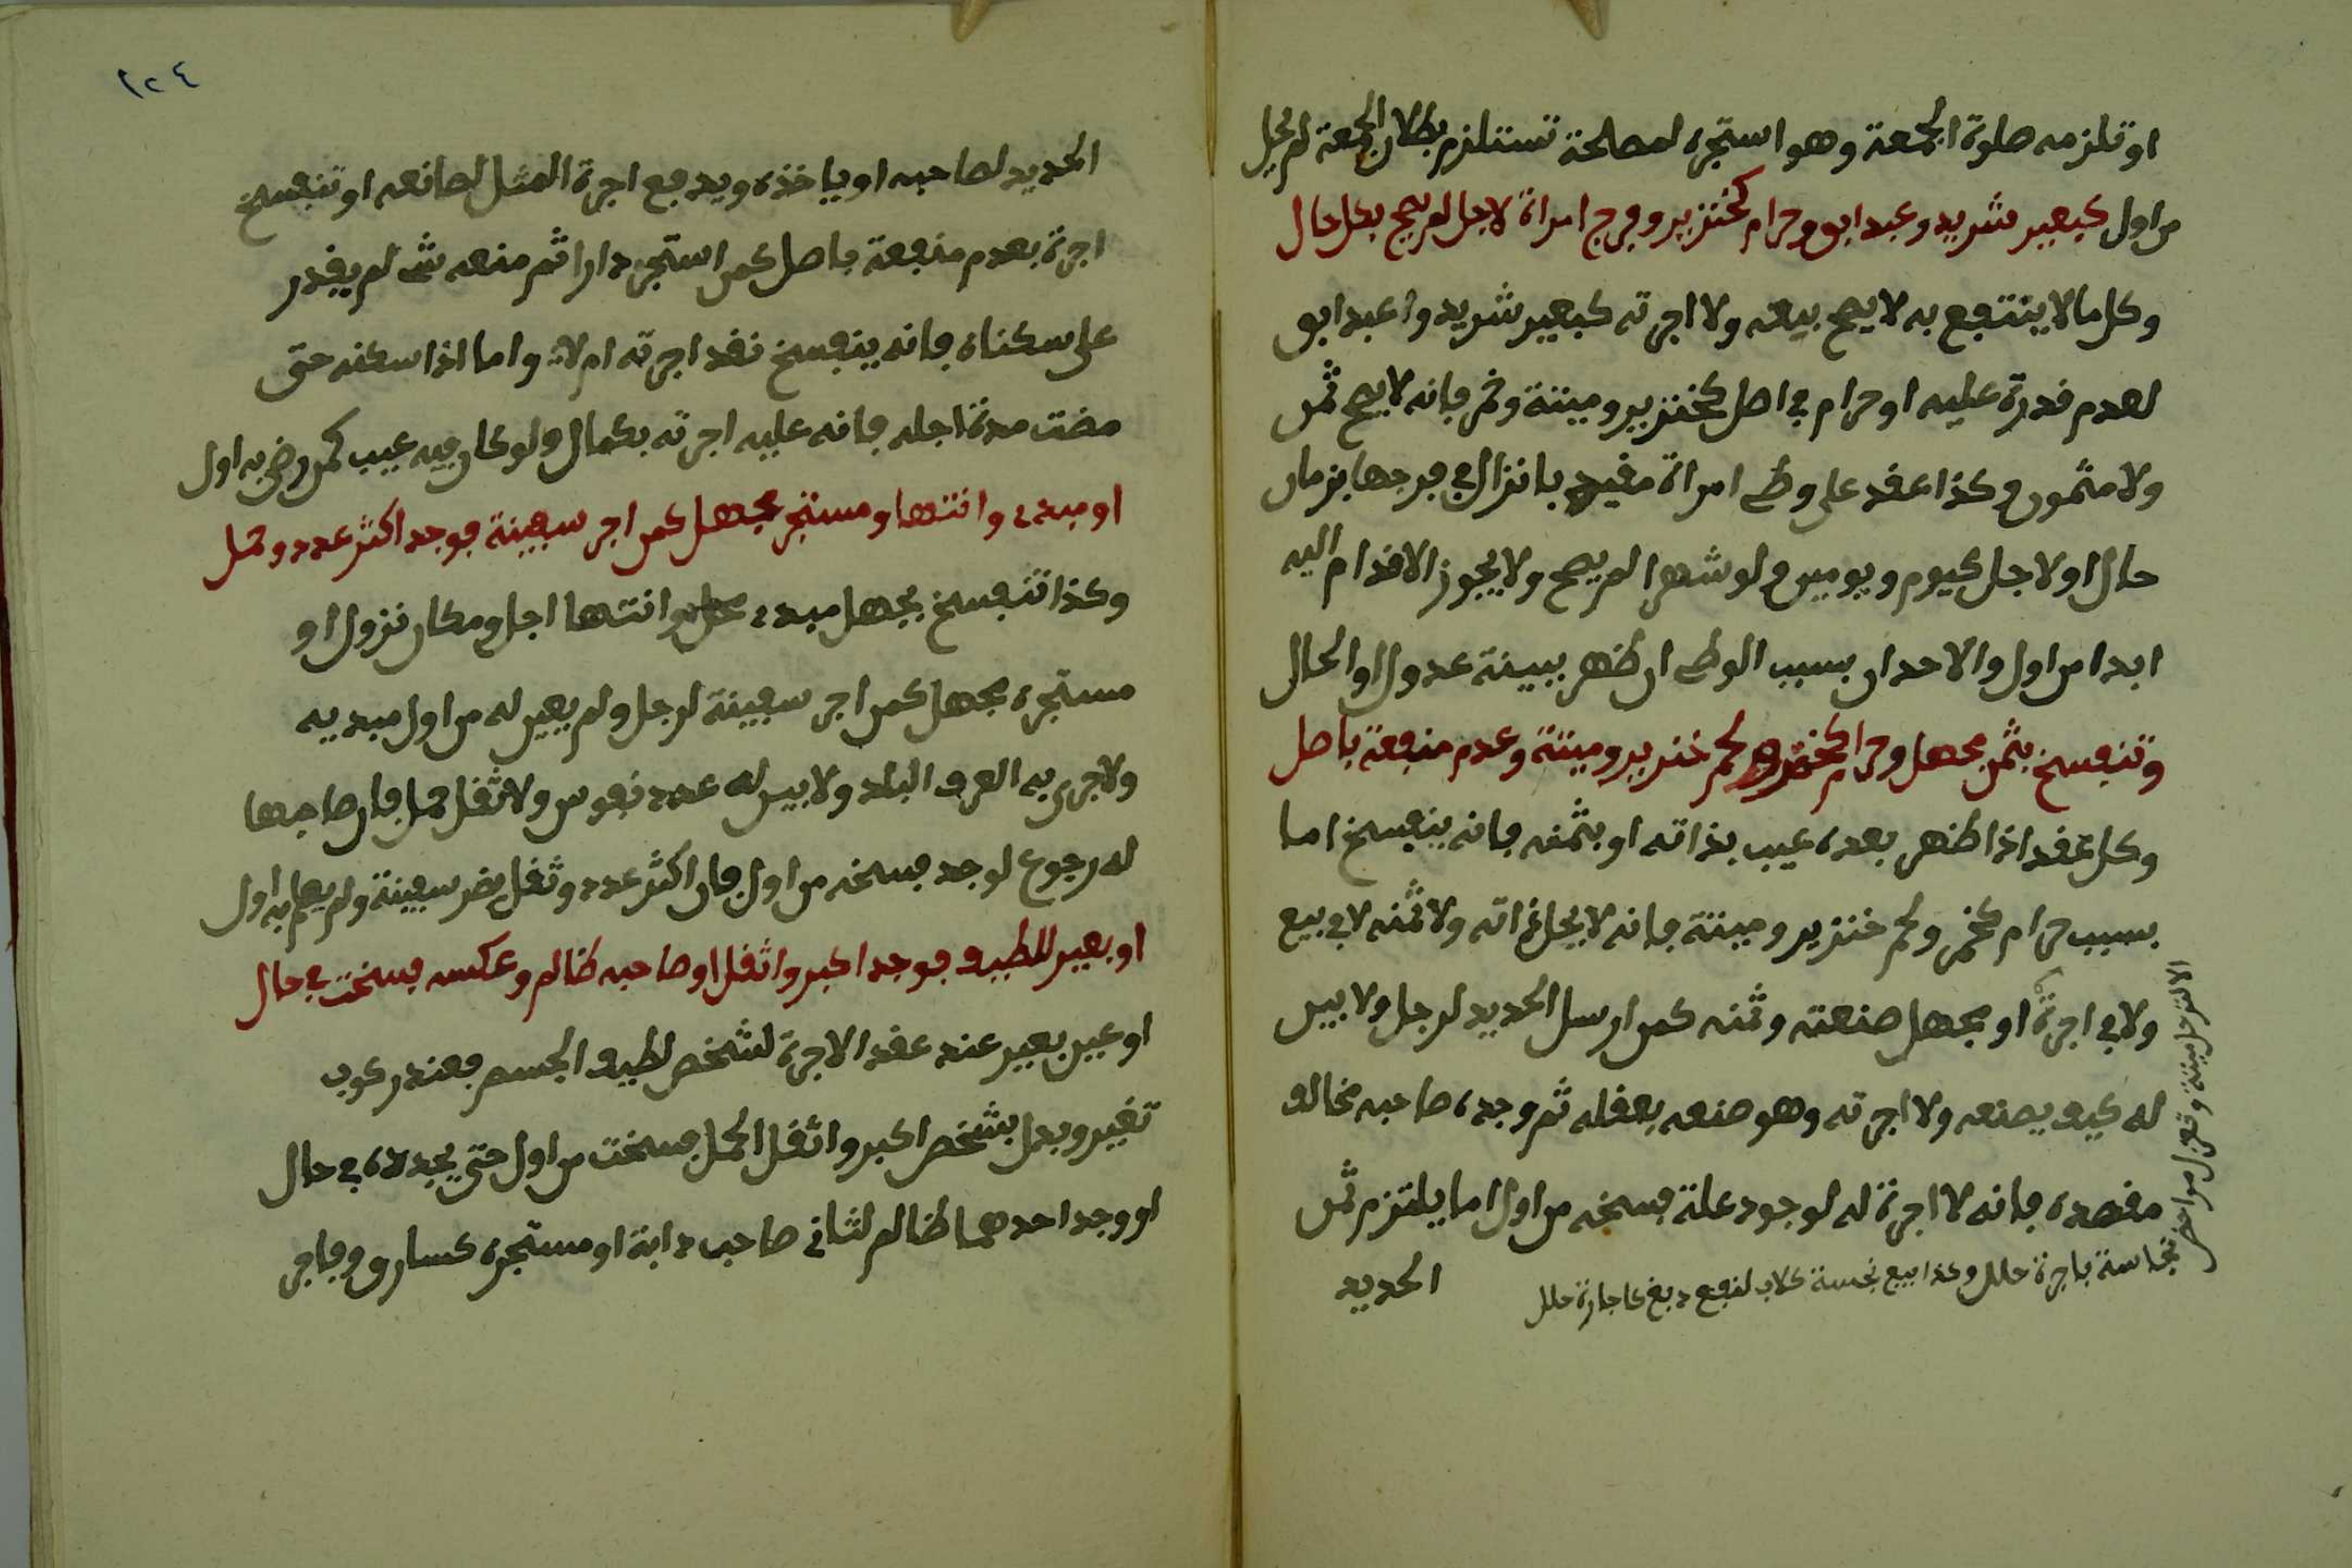 او تلزمه صلوة الجمعة وهو استجره لمصلحة تستلزم بطلان الجمعة لم يحل
من اول كبعير شريد وعبد ابق وحرام كخنزير وفرج امراة لاجل لم يصح بكل حال
وكل ما لا ينتفع به لا يصح بيعه ولا اجرته كبعير شريد واعبد ابق
لعدم قدرة عليه او حرام في اصل كخنزير وميتة وخمر فانه لا يصح ثمن
ولا مثمون وكذا عقد على وطئ امراة مقيد بانزال في فرجها بزمان
حال او لاجل كيوم ويومين ولو شهرا لم يصح ولا يجوز الاقدام اليه
ابدا من اول والاحدان بسبب الوطئ ان ظهر ببينة عدول او الحال
وتنفسخ بثمن مجهل وحرام لحم خنزير وميتة وعدم منفعة باصل
وكل عقد اذا ظهر بعده عيب بذاته او بثمنه فانه ينفسخ اما
بسبب حرام كخمر ولحم خنزير وميتة فانه لا يحل ذاته ولا ثمنه لا في بيع
ولا في اجرة او بجهل صنعته وثمنه كمن ارسل الحديد لرجل ولا بين
له كيف يصنعه ولا اجرته وهو صنعه بعقله ثم وجده صاحبه مخالف
مقصده فانه لا اجرة له لوجود علة فسخه من اول اما يلتزم ثمن
الحديد
نجاسة باجرة حلل وكذا بيع نجسة كلاب لنفع دبغ كاجارة حلل
١٢٤
الحديد لصاحبه او ياخذه ويدفع اجرة المثل لصانعه او تنفسخ
اجرة بعدم منفعة باصل كمن استجر دارا ثم منعه شئ لم يقدر
على سكناه فانه ينفسخ نقد اجرته ام لا واما اذا سكنه حتى
مضت مدة اجله فانه عليه اجرته بكمال ولو كان فيه عيب كمن رضي به اول
او مبدء وانتها ومستجر بجهل كمن اجر سفينة فوجد اكثر عدد وثقل
وكذا تنفسخ بجهل مبدء وانتها اجل ومكان نزول او
مستجره بجهل كمن اجر سفينة لرجل ولم يعين له من اول مبديه
ولا جرى به العرف البلد ولا بين له عدد نفوس ولا ثقل حمل فان صاحبها
له رجوع لوجد فسخه من اول فان اكثر عدد وثقل يضر سفينة ولم يعلم به اول
او بعير للطيف فوجد اكبر واثقل او صاحبه ظالم وعكسه فسخت في حال
او عين بعير عند عقد الاجرة لشخص لطيف الجسم فعند ركوب
تغير وبدل بشخص اكبر واثقل الحمل فسخت من اول حتى يجددلاه في حال
او وجد احدهما ظالم لثاني صاحب دابة او مستجره كسارق وفاجر